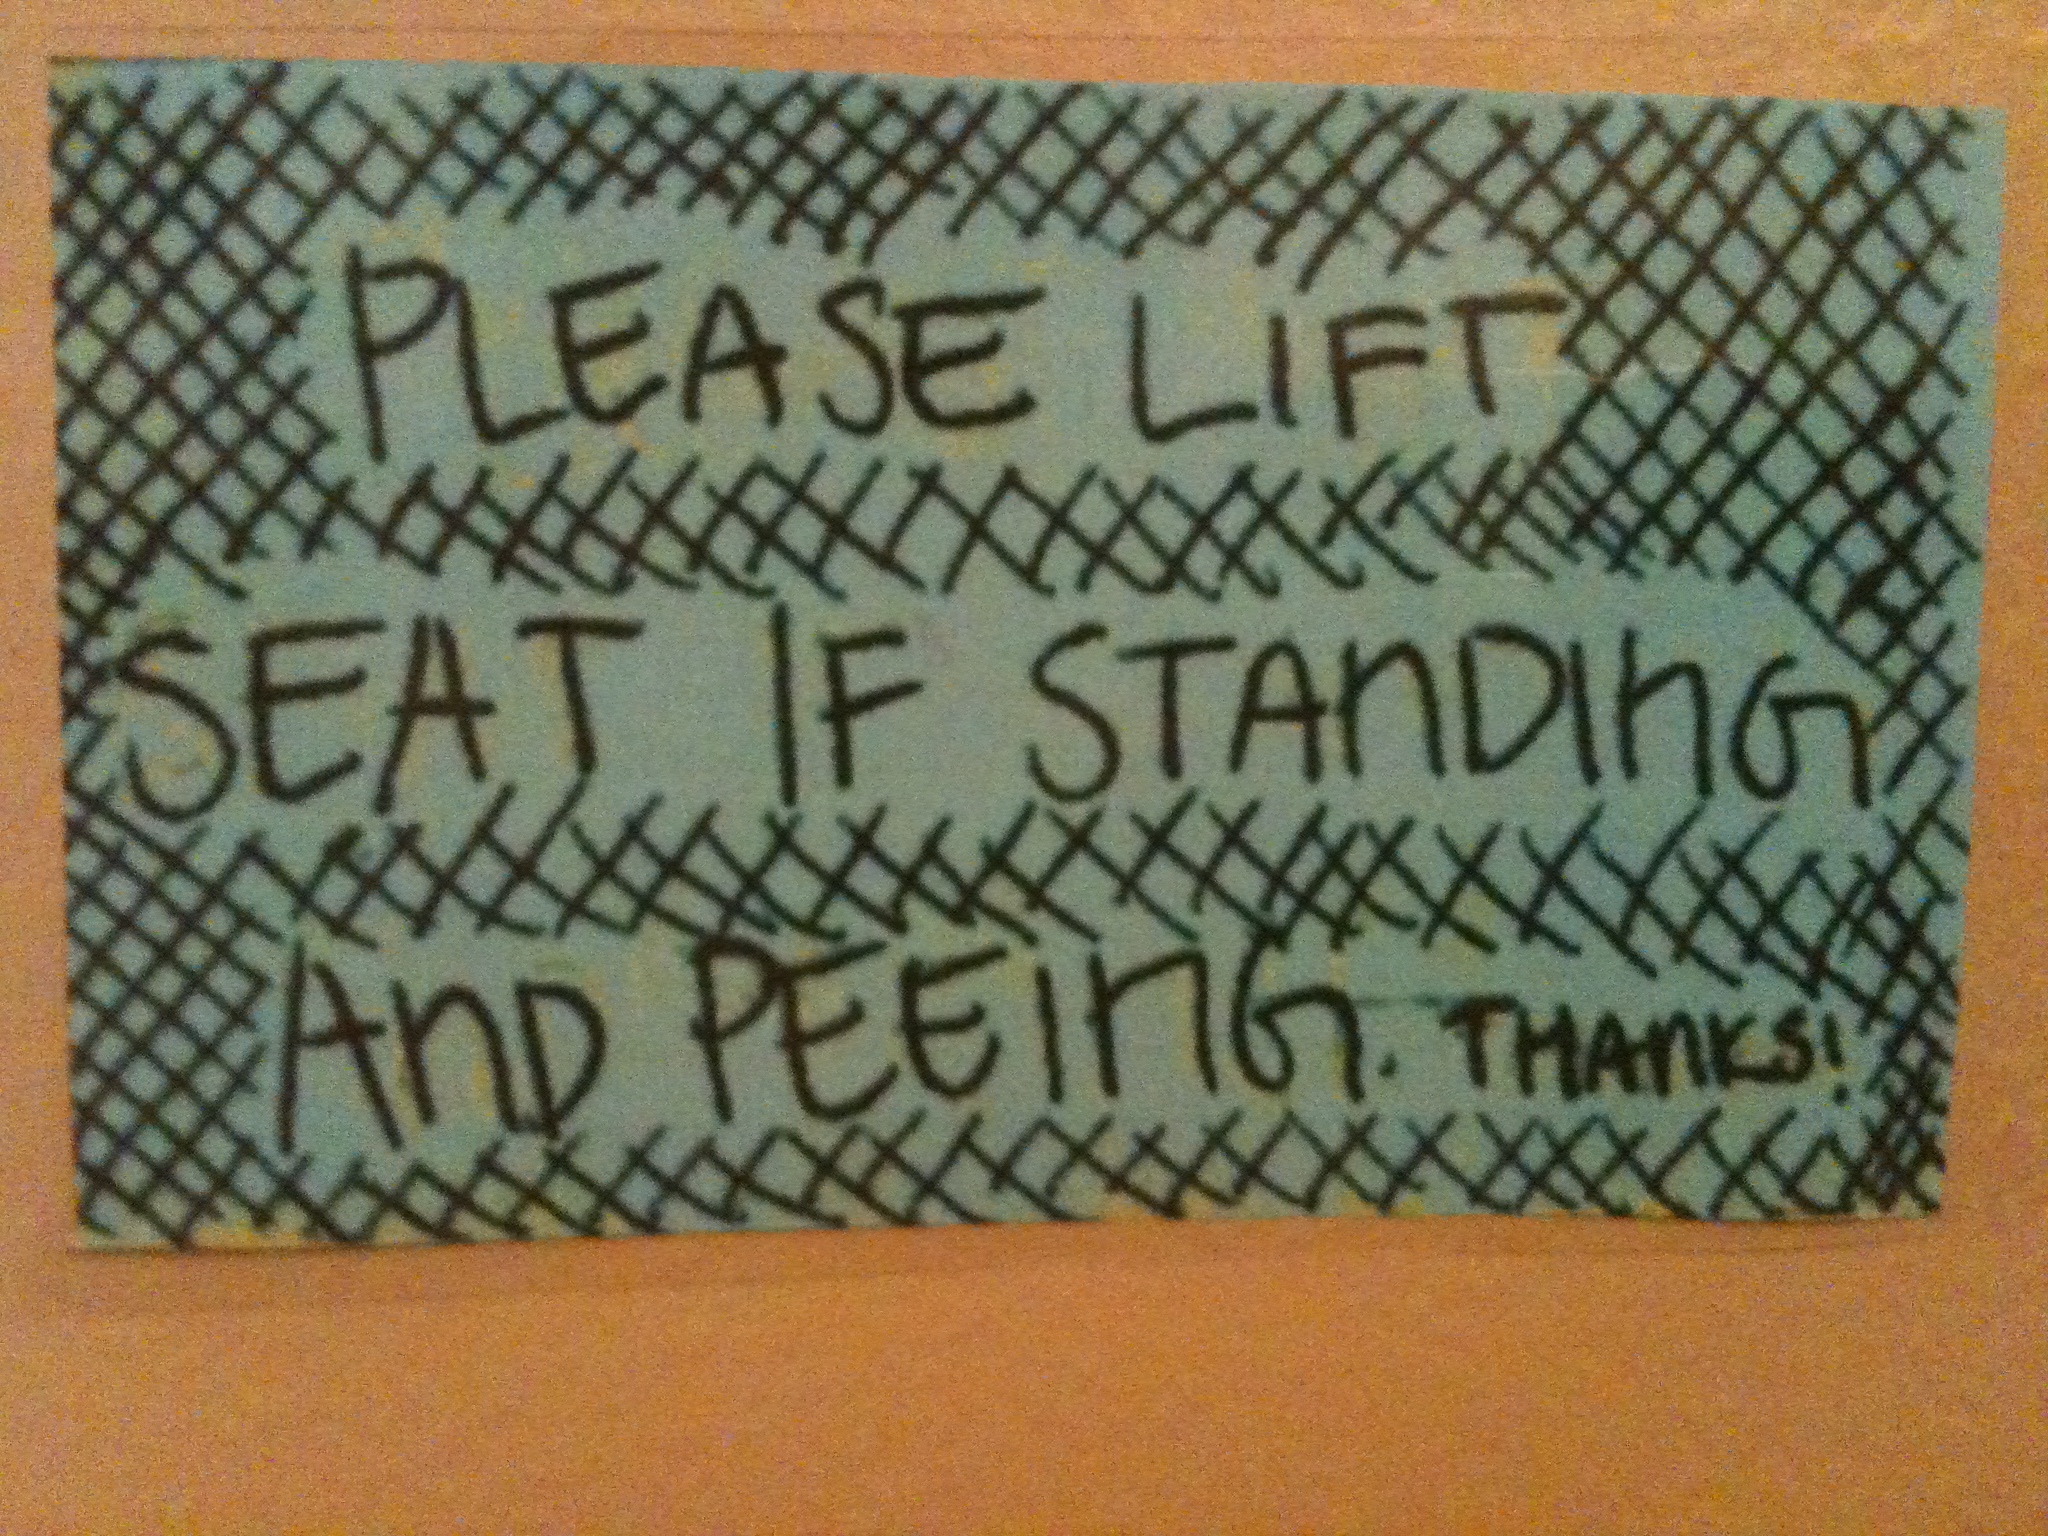 PLEASE LIFT
SEAT IF STANDING
AND PEEING. THANKS!